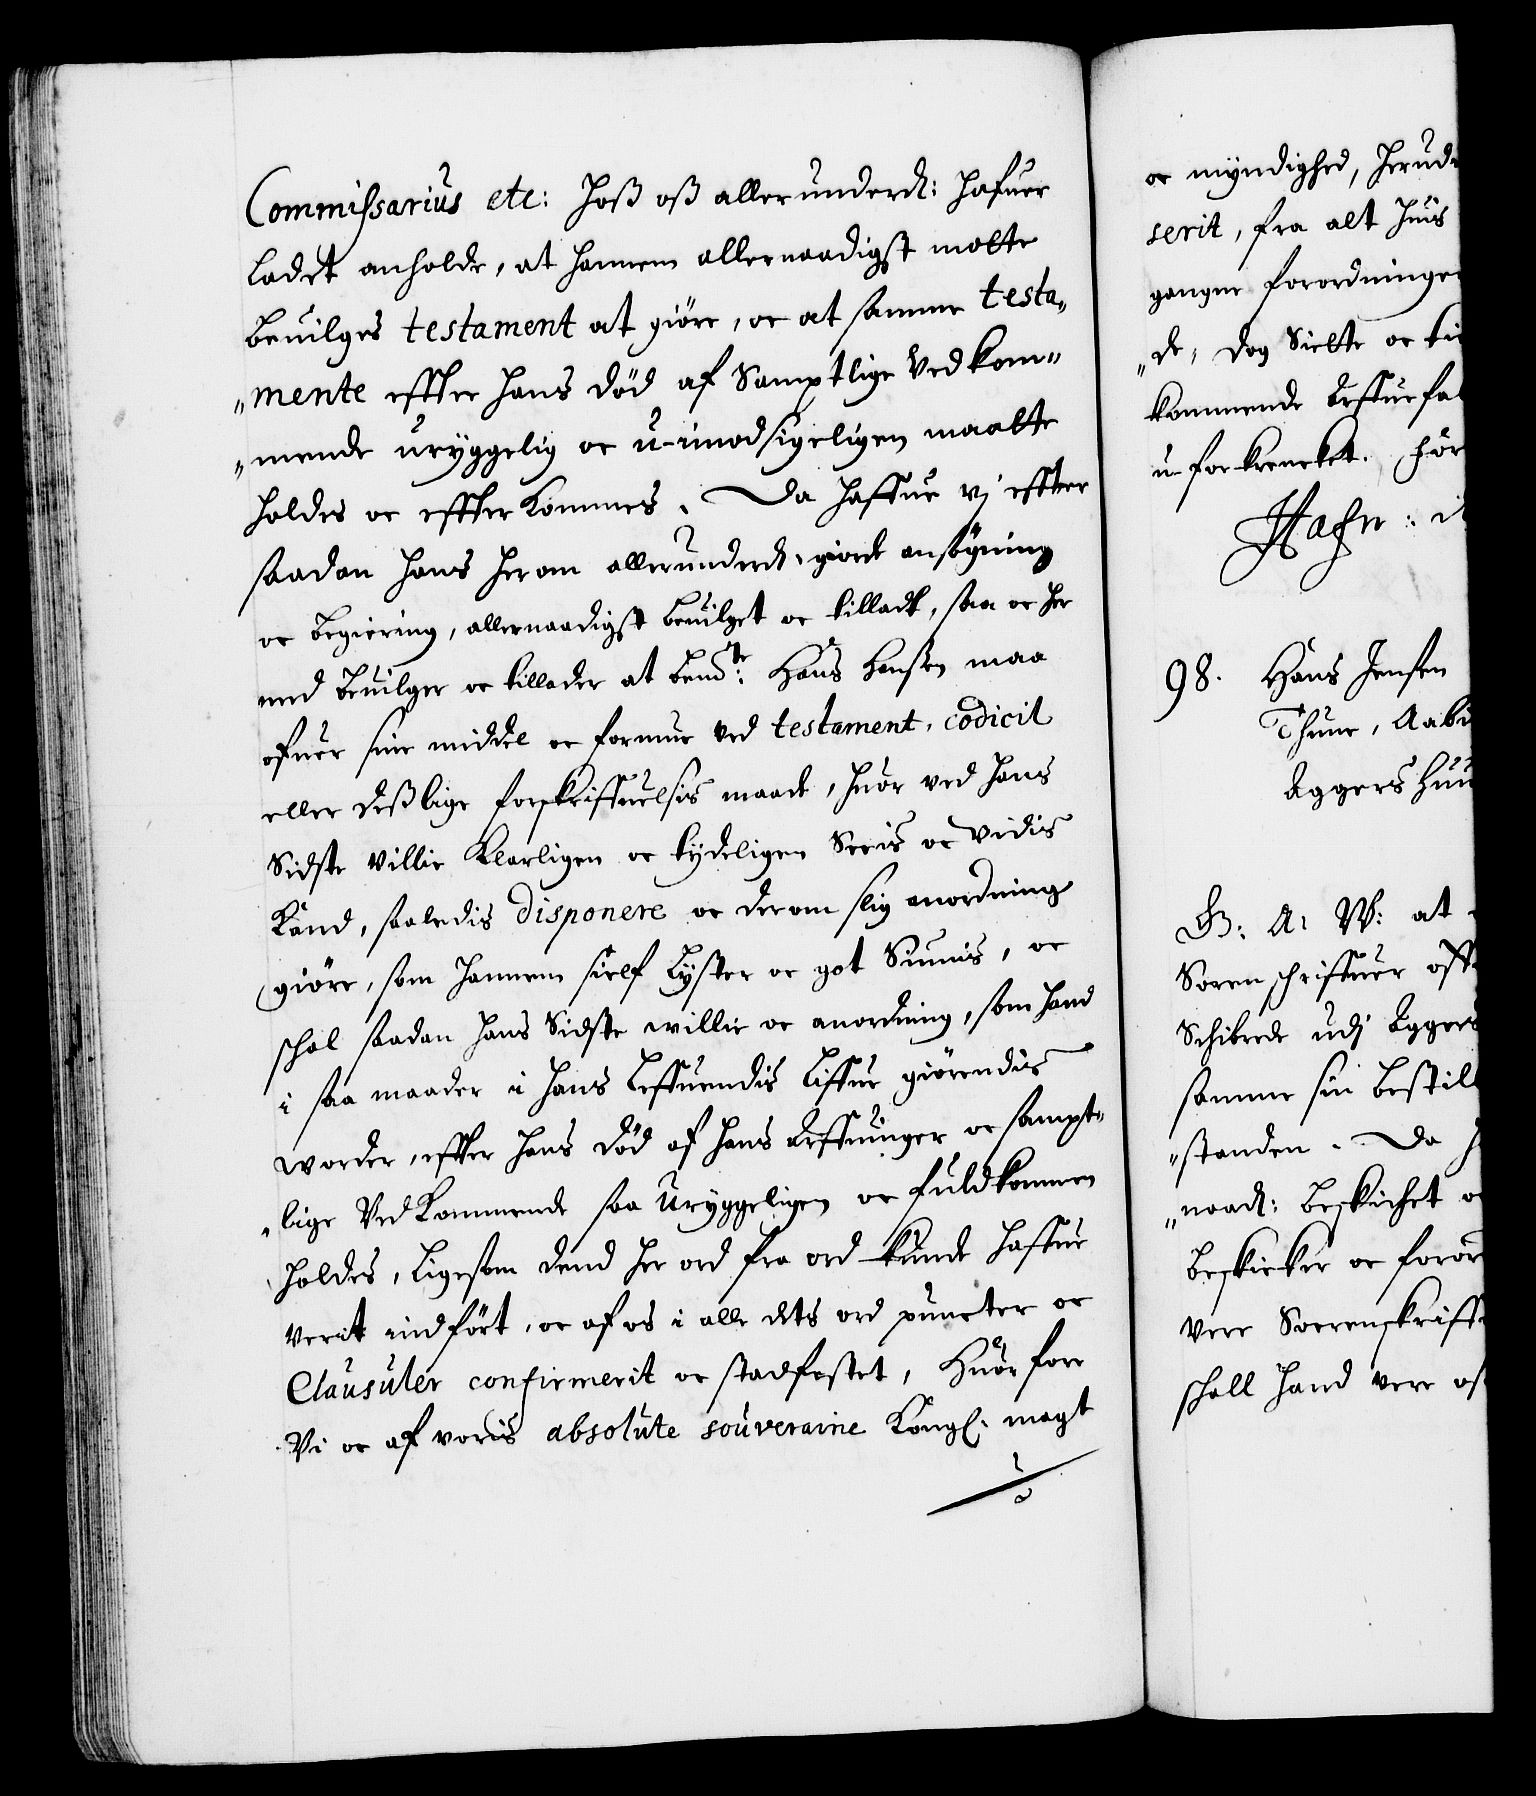 Commissarius etc: hoß oß allerunderd: hafuer
Ladet anholde, at hannem allernaadigst motte
beuilges testament at giöre, oc at samme testa„
„mente effter hans död af Samptlige Vedkom„
„mende uryggelig oc u-imodsigeligen maatte
holdes oc effterkommes. Da haffue vj effter
saadan hans herom allerunderd. giorde ansögning
oc begiering, allernaadigst beuilget oc tilladt, saa oc her
med beuilger oc tillader at bemte: Hans Hanßen maa
ofuer sine middel oc formue ved testament, codicil
eller deßlige forskriffuelsis maade, huor ved hans
Sidste villie klarligen oc tydeligen Seeis oc vidis
kand, saaledis disponere oc derom slig anordning
giöre, som hannem sielf Lyster oc got Siunis, oc
schal saadan hans Sidste willie oc anordning, som hand
i saa maader i hans Leffuendis Liffue giörendis
worder, effter hans död af hans Arffuinger oc sampt„
„lige VedKommende saa Uryggeligen oc fuldkommen
holdes, Ligesom dend her ord fra ord kunde haffue
verit indfört, oc af os i alle dets ord puncter oc
Clausuler confirmerit oc stadfestet, Huorfore
Vi oc af voris absolute souveraine Kongl: magt
oc myndighed, herud
serit, fra alt huis
gangne forordninge
„de, dog Sielte oc ti
kommende Arffuefal
u-forkrencket. For
Hafn: d
98. Hans Jensen
Thune, Aabu
Aggershuu
G: A: W: at
Sorenschriffuer off
Schibrede udj Aggers
samme sin bestill
„standen. Da h
„naad: beskichet o
beskicker oc foror
vere Soerenskriff
schall hand vere of